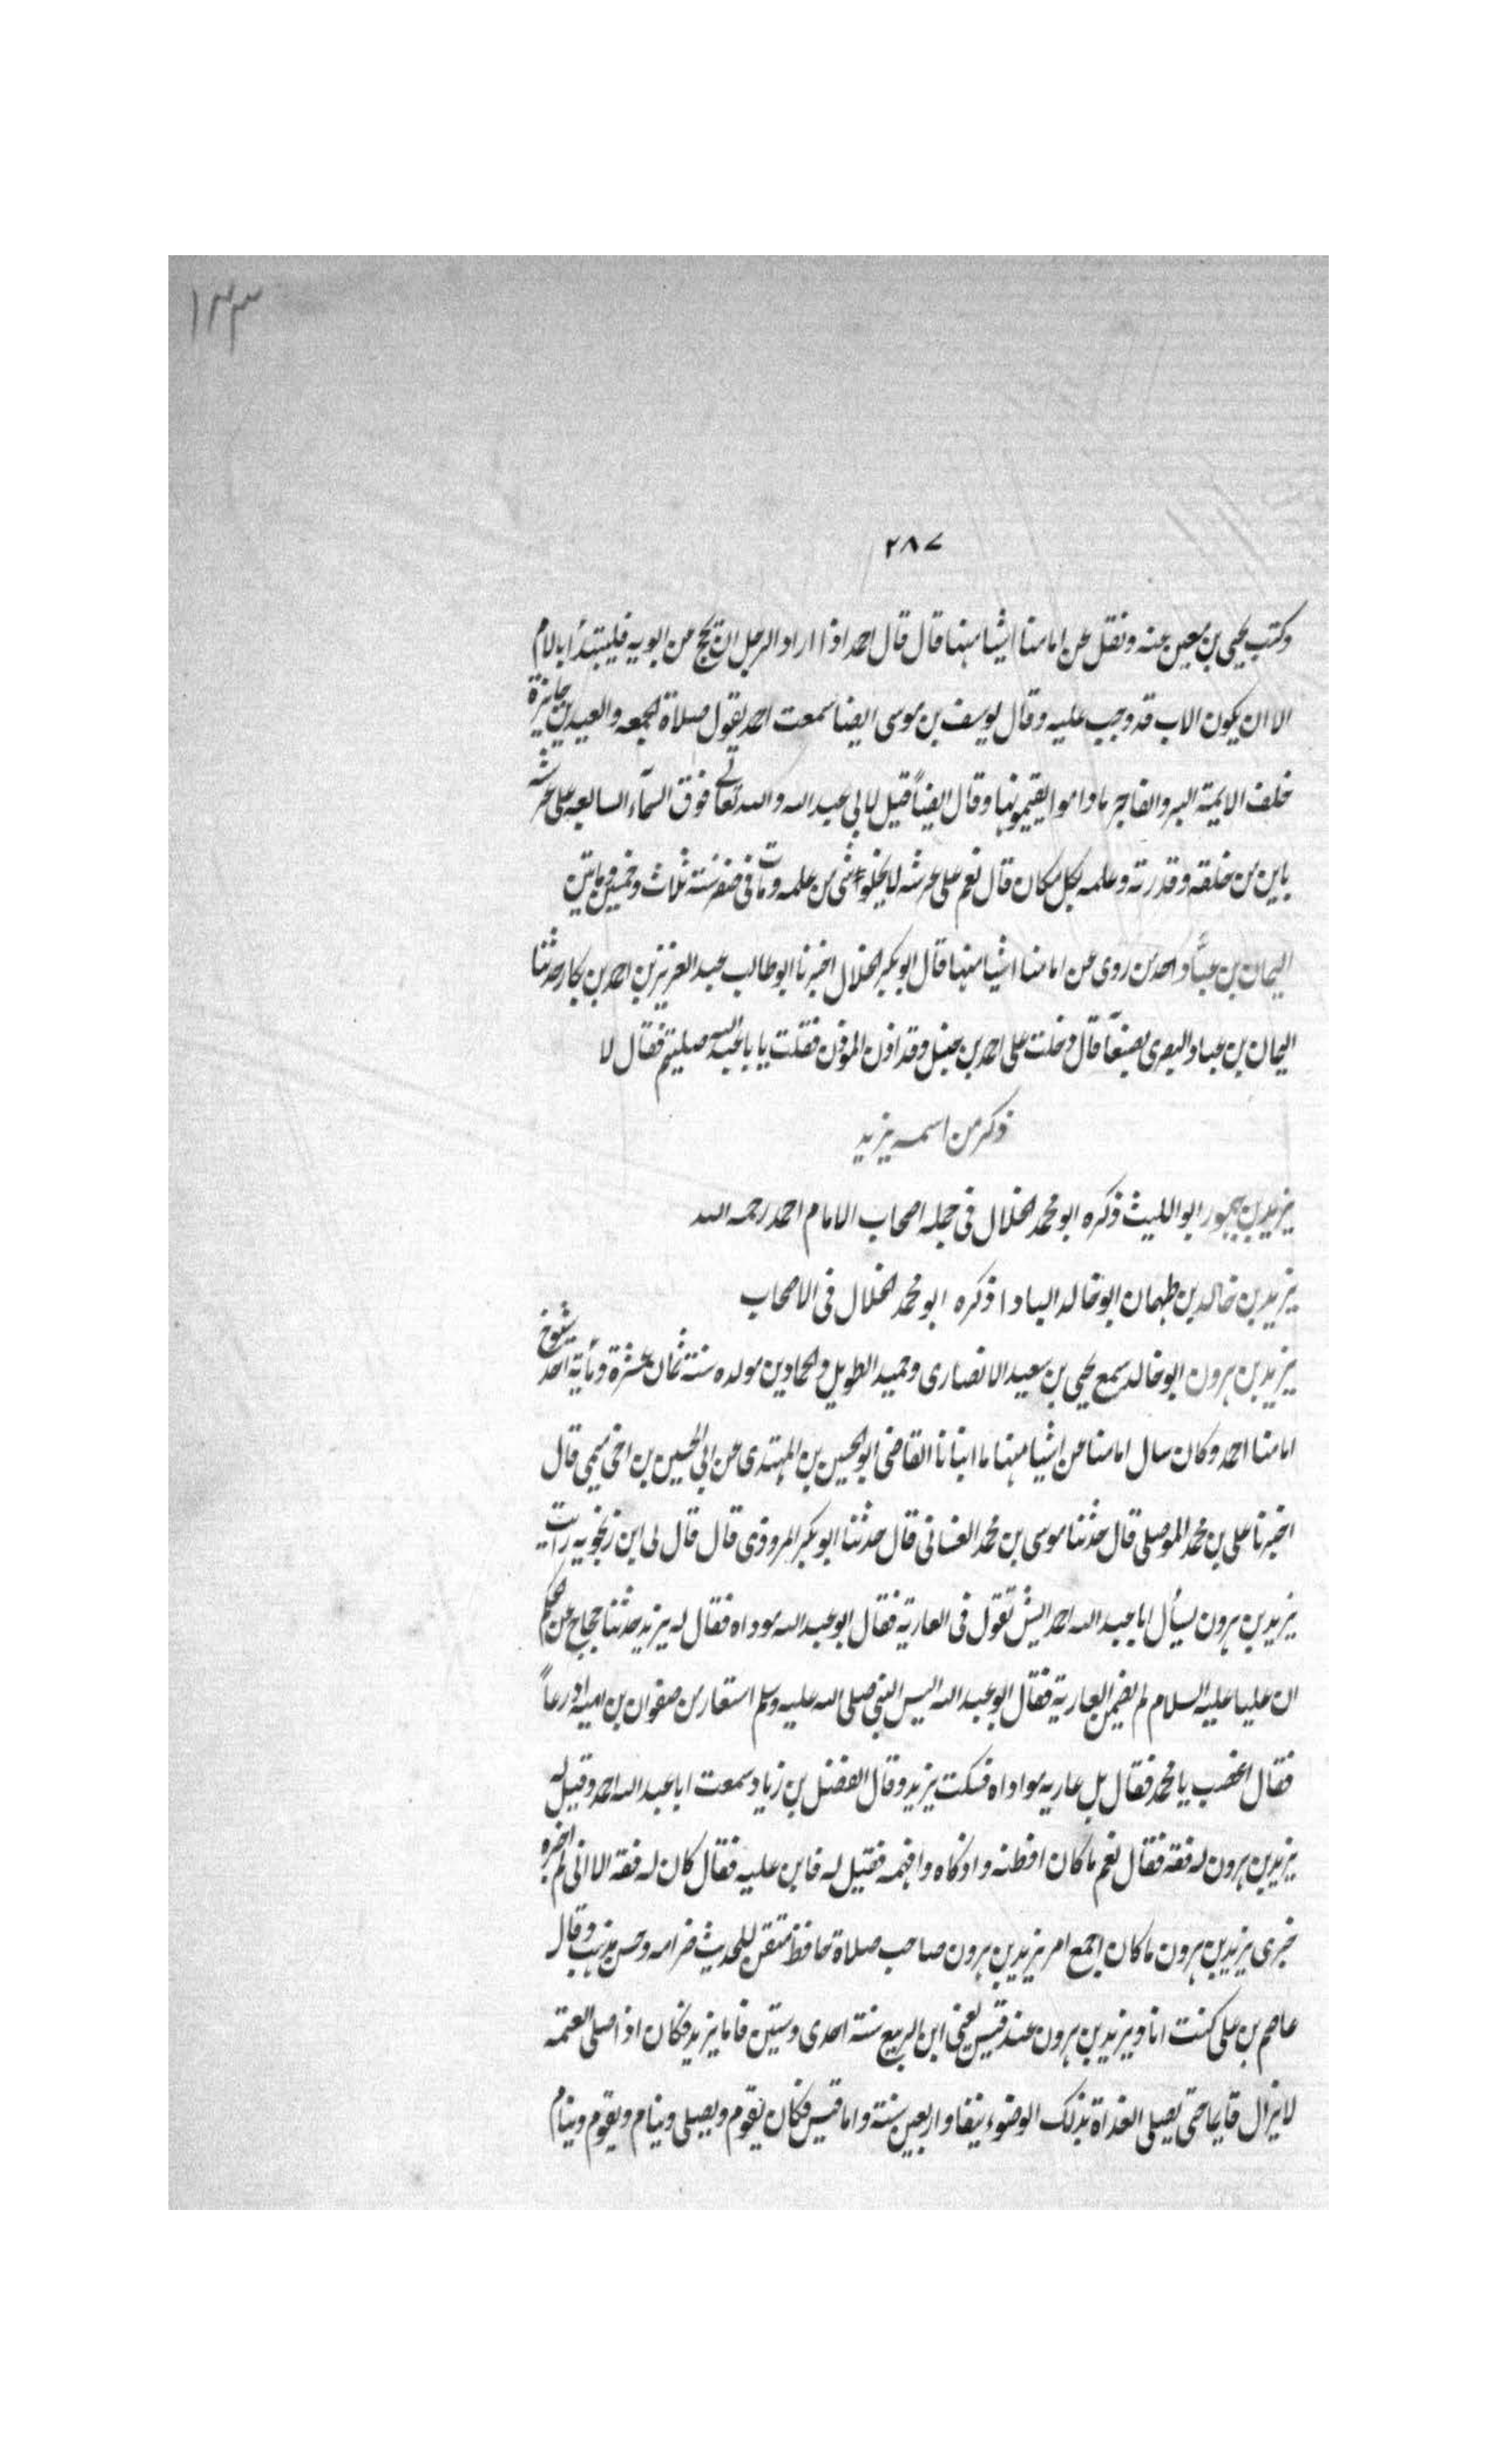 ١٣٣
٢٨٧
وكتب يحيى بن معين عنه ونقل عن امامنا اشيا منها قال قال احمد اذا اراد الرجل ان يحج عن ابويه فليبتدأ بالام
الا ان يكون الاب قد وجب عليه وقال يوسف بن موسى ايضا سمعت احمد يقول صلاة الجمعه والعيدين جايزة
خلف الايمة البر والفاجر ما داموا يقيمونها وقال ايضاً قيل لابي عبد الله والله تعالى فوق السمآء السابعه على عرشه
باين من خلقه وقدرته وعلمه بكل مكان قال نعم على عرشه لا يخلو شى من علمه ومات فى صفر سنة ثلاث وخمسين وماتين
اليمان بن عبَّاد احد من روى عن امامنا اشيا منها قال ابو بكر الخلال اخبرنا ابو طالب عبد العزيز بن احمد بن بكار حدثنا
اليمان بن عباد البصرى بصنعآ قال دخلت على احمد بن حنبل وقد اذن الموذن فقلت يا با عبد الله صليتم فقال لا
ذكر من اسمه يزيد
يزيد بن جمهور ابو الليث ذكره ابو محمد الخلال فى جمله اصحاب الامام احمد رحمه الله
يزيد بن خالد بن طهمان ابو خالد البادا ذكره ابو محمد الخلال فى الاصحاب
يزيد بن هرون ابو خالد سمع يحيى بن سعيد الانصارى وحميد الطويل والحمادين مولده سنة ثمان عشرة ومأية احد شيوخ
امامنا احمد وكان سال امامنا عن اشيا منها ما انبانا القاضى ابو الحسين بن المهتدى عن ابى الحسين بن اخى ميمى قال
اخبرنا على بن محمد الموصلى قال حدثنا موسى بن محمد الغسانى قال حدثنا ابو بكر المروذى قال قال لى ابن زنجويه رايت
يزيد بن هرون يسأل ابا عبد الله احمد ايش تقول فى العارية فقال ابو عبد الله موداه فقال له يزيد حدثنا حجاج عن الحكم
ان عليا عليه السلام لم يضمن العارية فقال ابو عبد الله اليس النبى صلى الله عليه وسلم استعار من صفوان بن اميه ادرعاً
فقال اغصب يا محمد فقال بل عاريه مواداه فسكت يزيد وقال الفضل بن زياد سمعت ابا عبد الله احمد وقيل له
يزيد بن هرون له فقه فقال نعم ما كان افطنه واذكاه وافهمه فقيل له فابن عليه فقال كان له فقه الا انى لم اخبره
خبرى يزيد بن هرون ما كان اجمع امر يزيد بن هرون صاحب صلاة حافظ متقن للحديث صرامه وحسن مذهب وقال
عاصم بن على كنت انا ويزيد بن هرون عند قيس يعنى ابن الربيع سنة احدى وستين فاما يزيد فكان اذا صلى العتمه
لا يزال قايما حتى يصلى الغداة بذلك الوضوء نيفا واربعين سنة واما قيس فكان يقوم ويصلى وينام ويقوم وينام